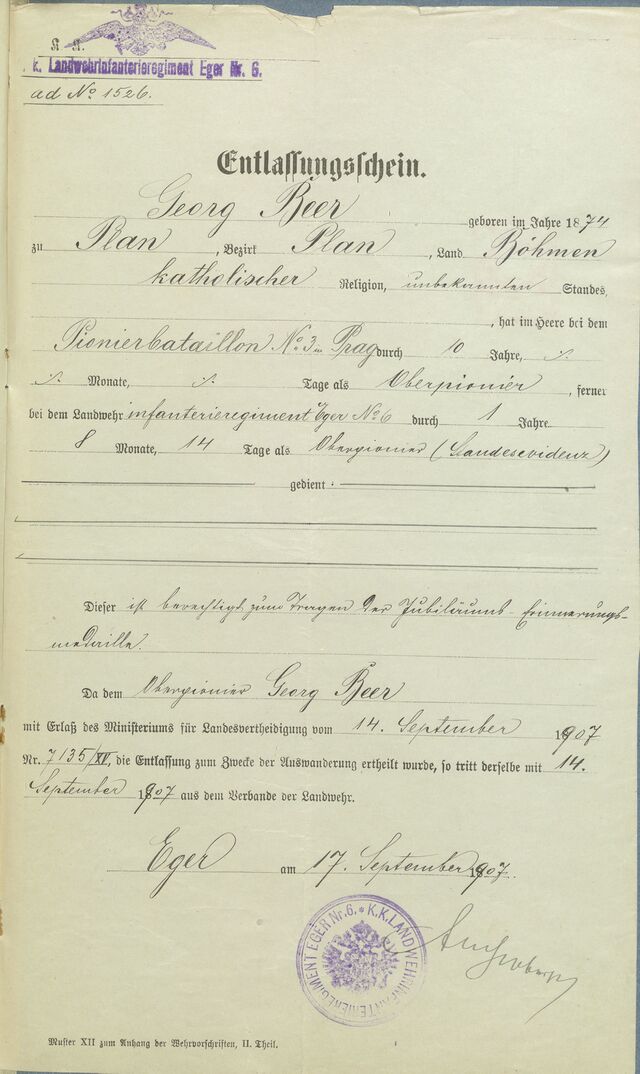 K. K.
k. Landwehrinfanterieregiment Eger Nr. 6.
ad No 1526.
Entlassungsschein.
Georg Beer geboren im Jahre 1874
zu Plan, Bezirk Plan, Land Böhmen
katholischer Religion, unbekannten Standes,
, hat im Heere bei dem
Pionierbataillon No 3 in Prag durch 10 Jahre, ./.
./. Monate, ./. Tage als Oberpionier, ferner
bei dem Landwehrinfanterieregiment Eger No 6 durch 1 Jahre
8 Monate, 14 Tage als Oberpionier (Landesevidenz)
gedient.
Dieser ist berechtigt zum Tragen der Jubiläums-Erinnerungs-
medaille.
Da dem Oberpionier Georg Beer
mit Erlaß des Ministeriums für Landesvertheidigung vom 14. September 1907
Nr. 7135/XV, die Entlassung zum Zwecke der Auswanderung ertheilt wurde, so tritt derselbe mit 14.
September 1907 aus dem Verbande der Landwehr.
Eger am 17. September 1907.
K.K. LANDWEHRINFANTERIEREGIMENT EGER Nr. 6.
Muster XII zum Anhang der Wehrvorschriften, II. Theil.